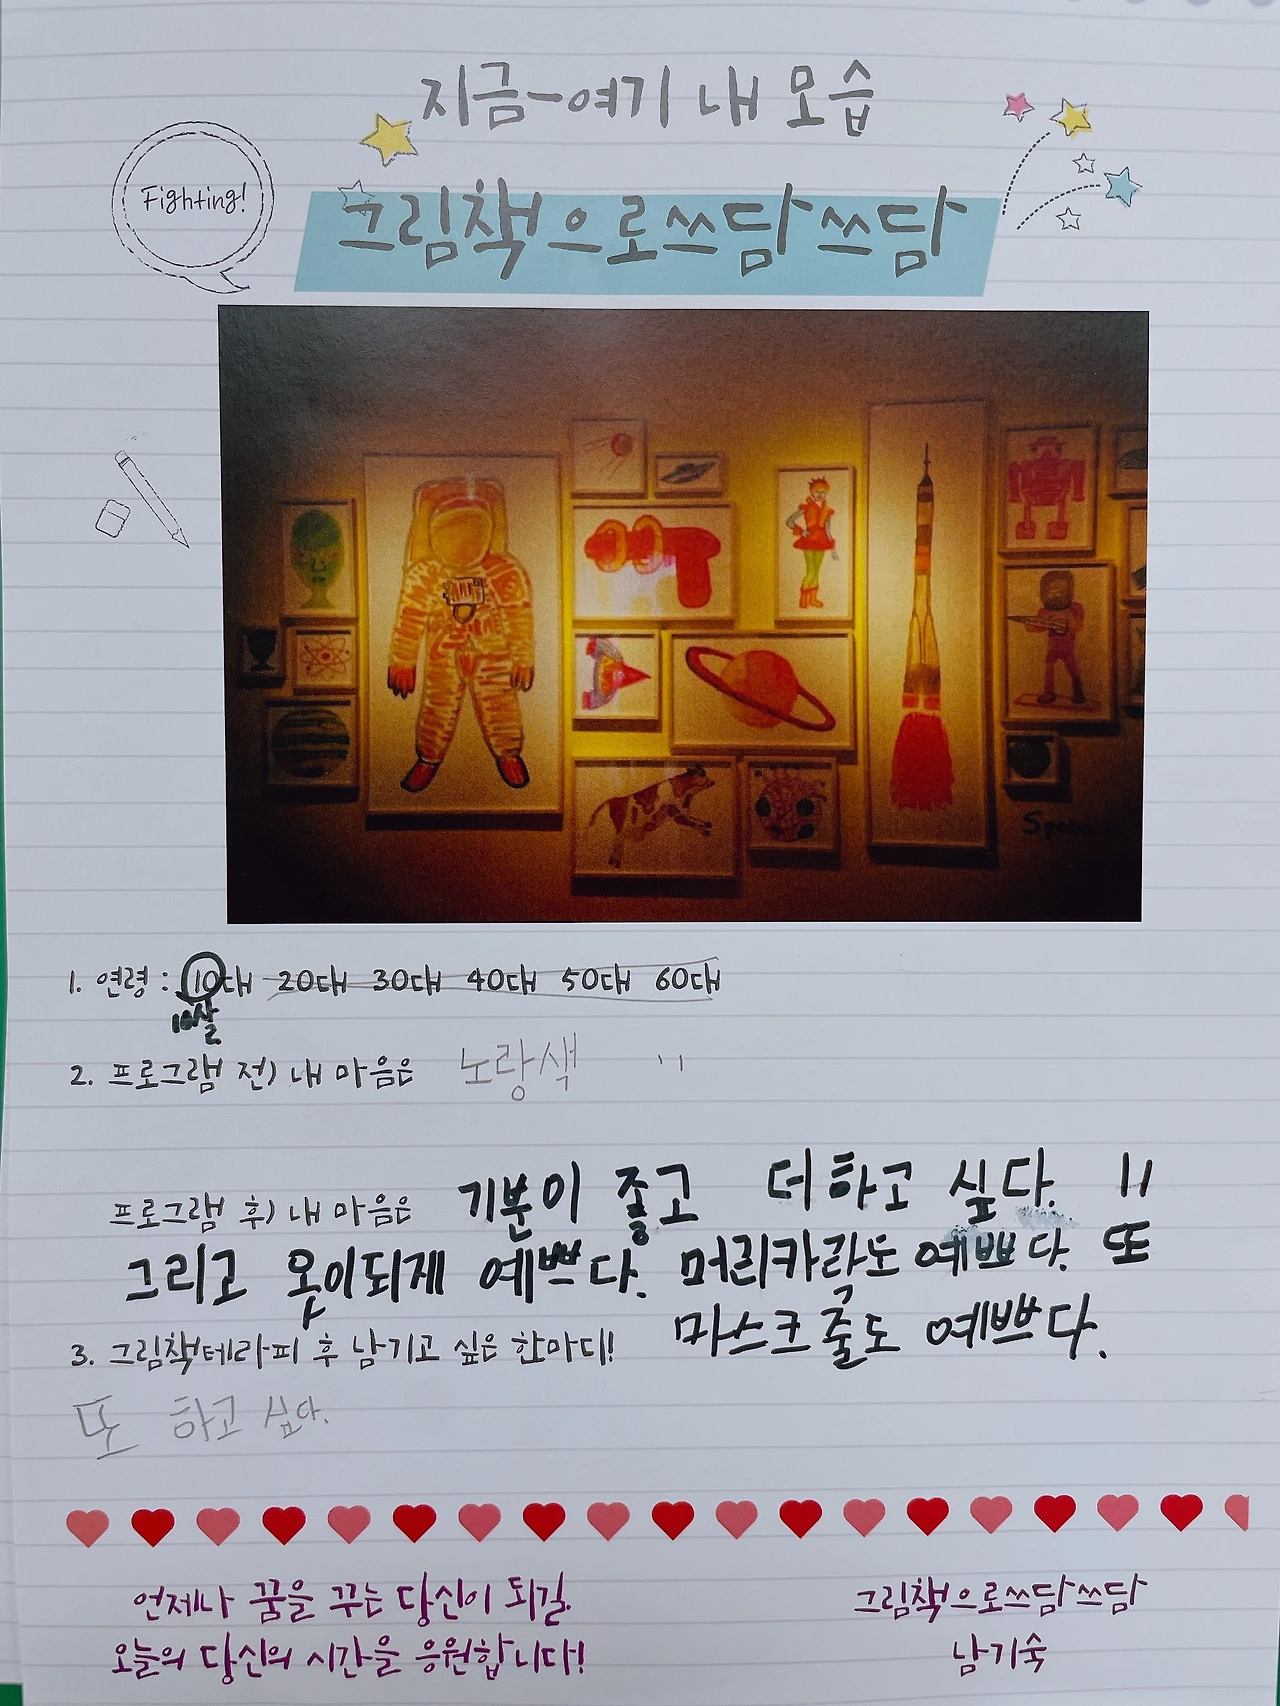 지금-여기 내 모습
Fighting!
그림책으로쓰담쓰담
1. 연령 : 10대 20대 30대 40대 50대 60대
10살
2. 프로그램 전) 내 마음은 노랑색
프로그램 후) 내 마음은 기분이 좋고 더 하고 싶다.
그리고 옷이되게 예쁘다. 머리카락도 예쁘다. 또
마스크 줄도 예쁘다.
3. 그림책테라피 후 남기고 싶은 한마디!
또 하고 싶다.
언제나 꿈을 꾸는 당신이 되길.
오늘의 당신의 시간을 응원합니다!
그림책으로쓰담쓰담
남기숙